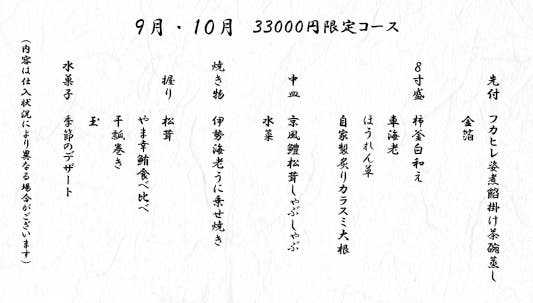 9月・10月　33000円限定コース
先付　フカヒレ姿煮餡掛け茶碗蒸し
金箔
8寸盛　柿釜白和え
車海老
ほうれん草
自家製炙りカラスミ大根
中皿　京風鱧松茸しゃぶしゃぶ
水菜
焼き物　伊勢海老うに乗せ焼き
握り　松茸
やま幸鮪食べ比べ
干瓢巻き
玉
水菓子　季節のデザート
(内容は仕入状況により異なる場合がございます)